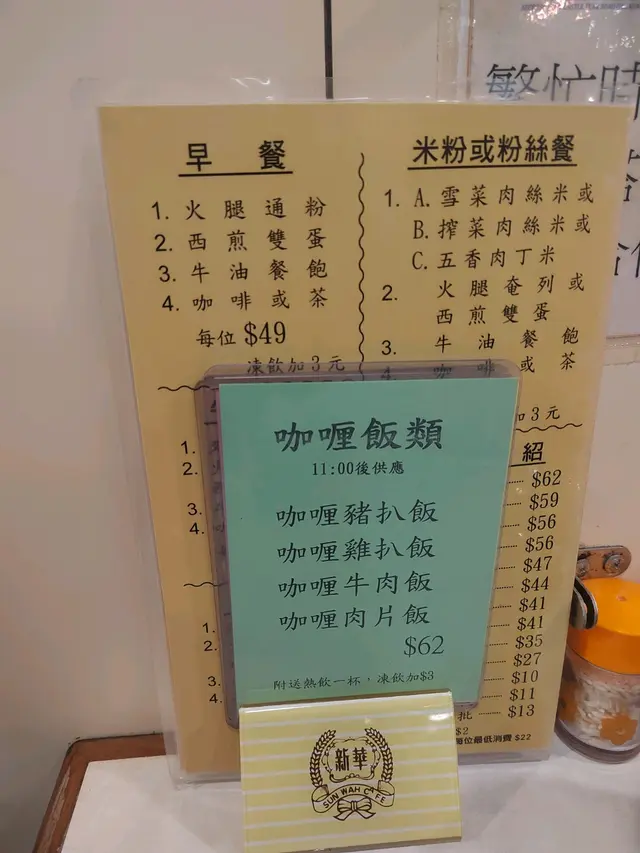 繁忙時
早 餐
1. 火 腿 通 粉
2. 西 煎 雙 蛋
3. 牛 油 餐 飽
4. 咖 啡 或 茶
每位 $49
凍飲加 3 元
米粉或粉絲餐
1. A. 雪 菜 肉 絲 米 或
B. 搾 菜 肉 絲 米 或
C. 五 香 肉 丁 米
2. 火 腿 奄 列 或
西 煎 雙 蛋
3. 牛 油 餐 飽
4. 咖 啡 或 茶
加 3 元
1.
2.
3.
4.
1.
2.
3.
4.
紹
$62
$59
$56
$56
$47
$44
$41
$41
$35
$27
$10
$11
批 $13
$2
每位最低消費 $22
咖喱飯類
11:00後供應
咖喱豬扒飯
咖喱雞扒飯
咖喱牛肉飯
咖喱肉片飯
$62
附送熱飲一杯，凍飲加$3
新華
SUN WAH CAFE